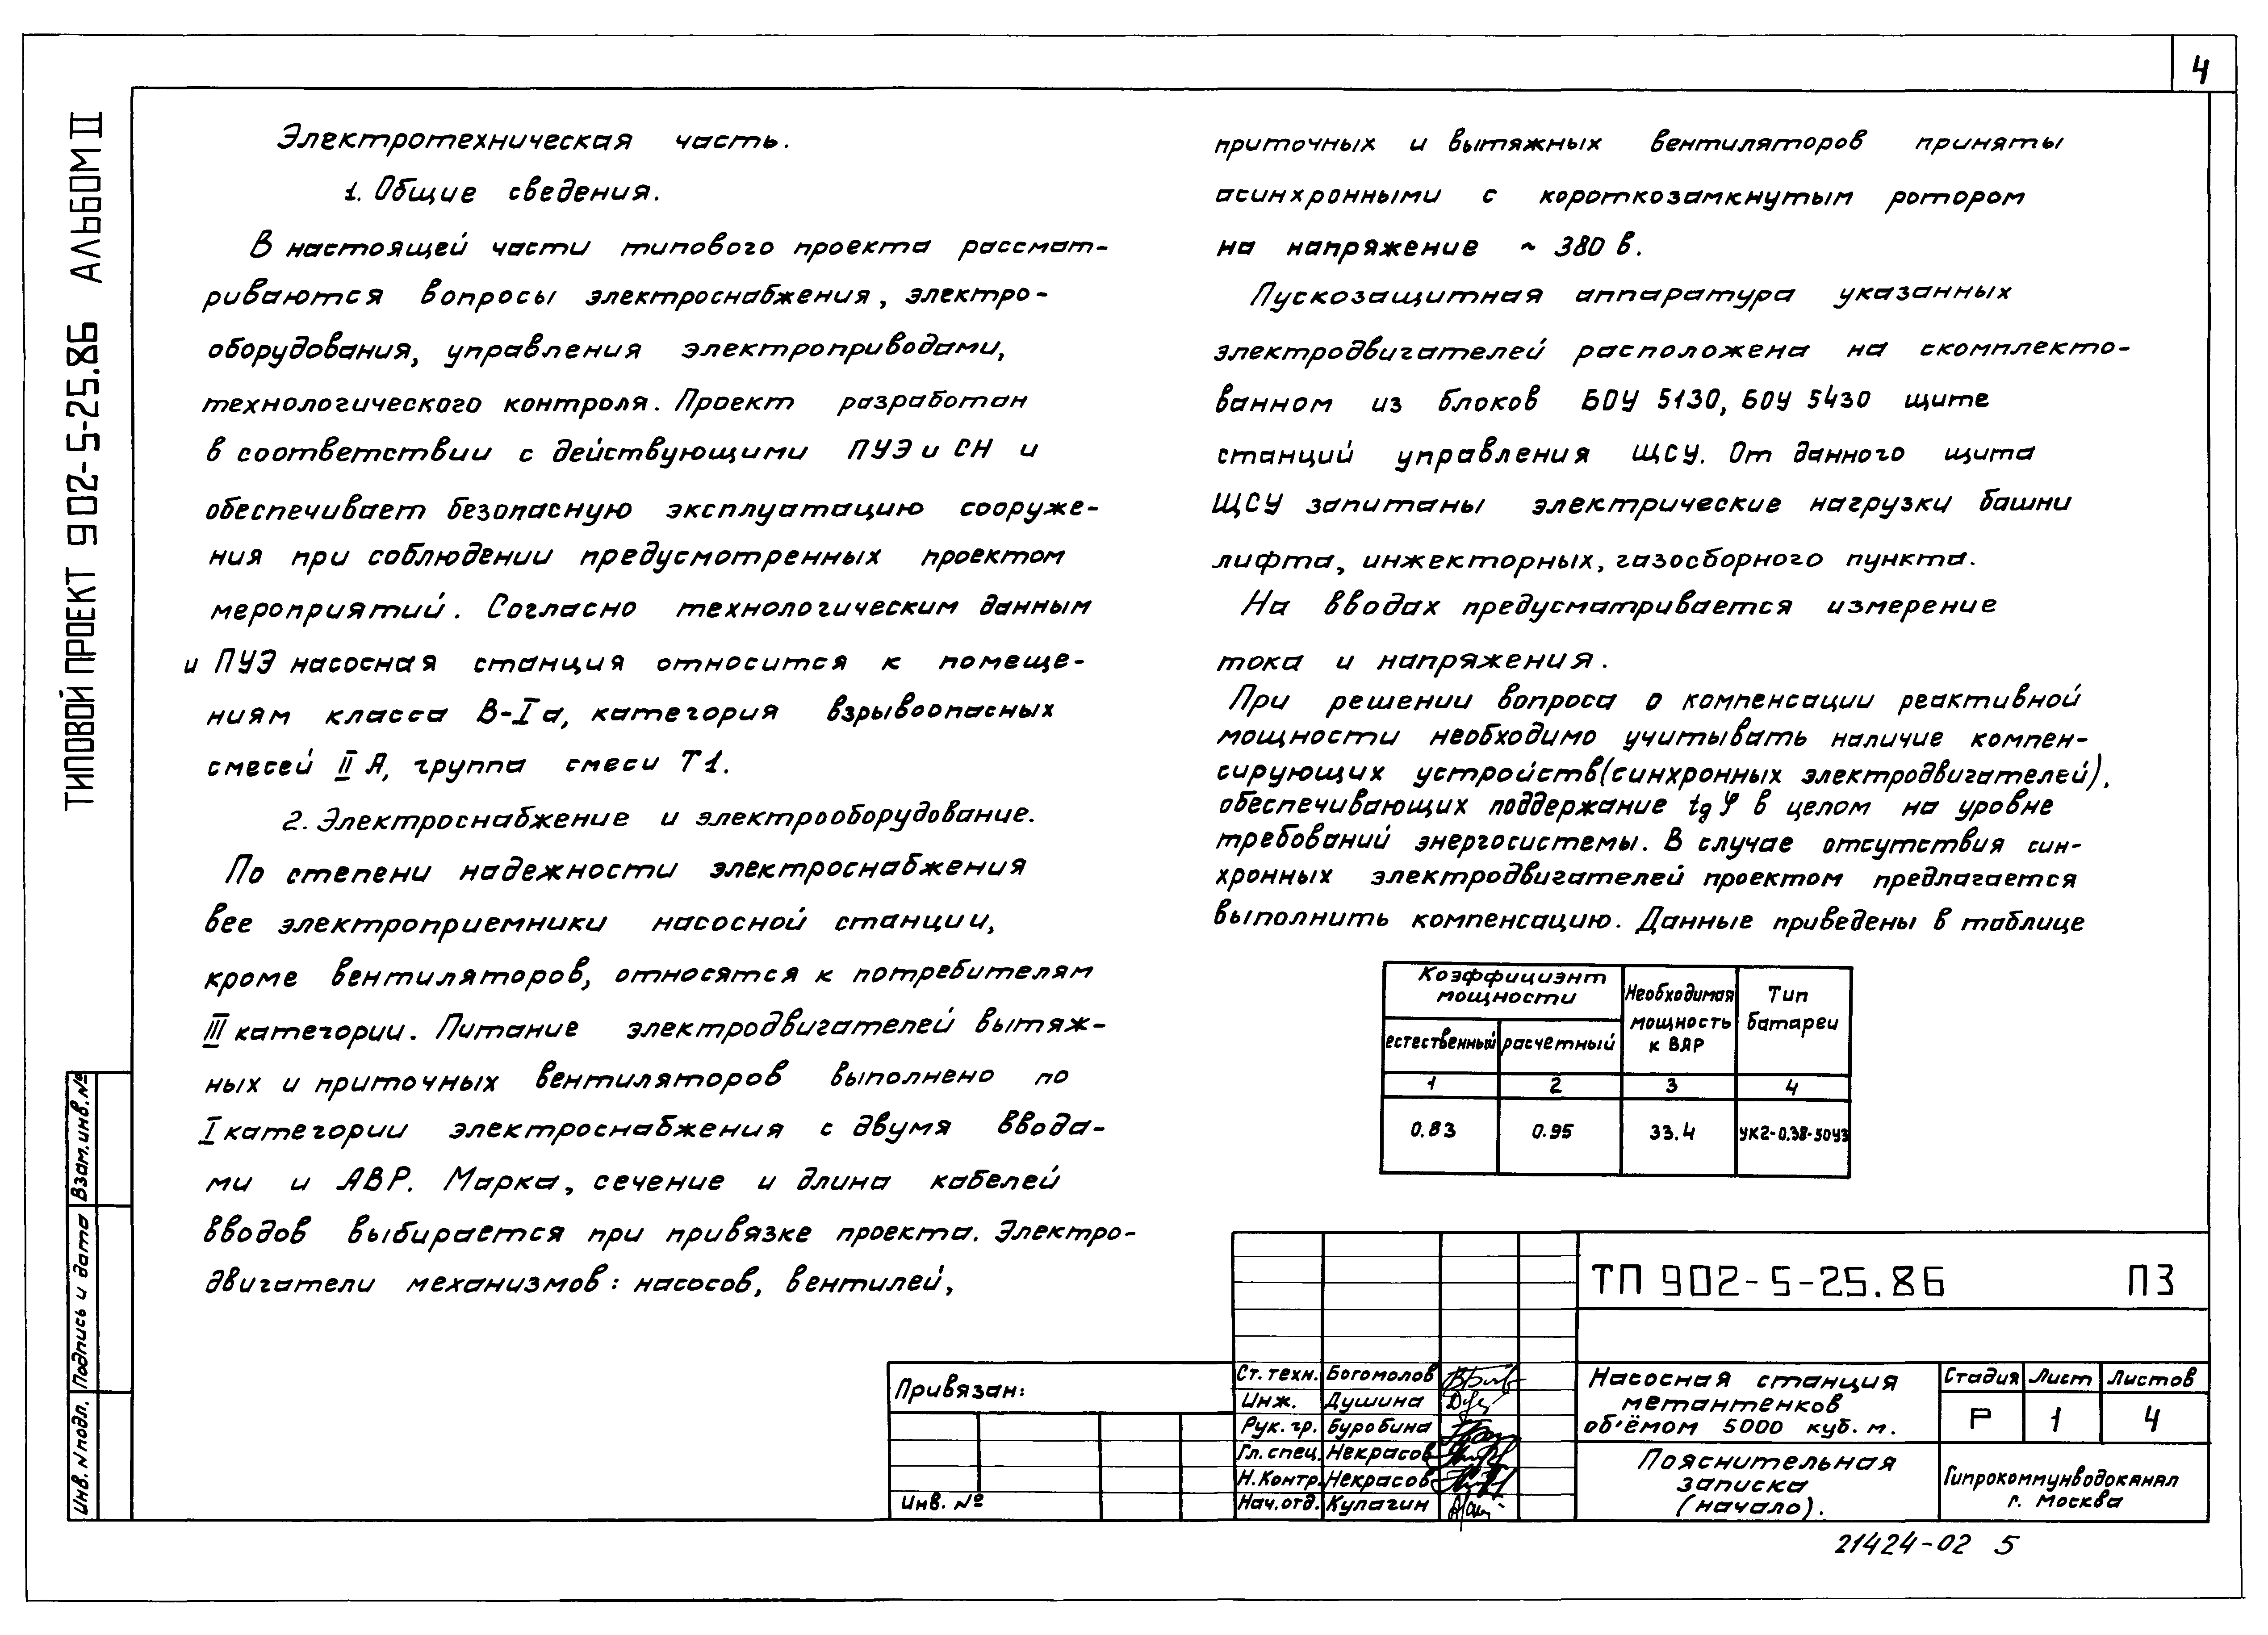 4
ТИПОВОЙ ПРОЕКТ 902-5-25.86 АЛЬБОМ II
Электротехническая часть.
1. Общие сведения.
В настоящей части типового проекта рассмат-
риваются вопросы электроснабжения, электро-
оборудования, управления электроприводами,
технологического контроля. Проект разработан
в соответствии с действующими ПУЭ и СН и
обеспечивает безопасную эксплуатацию сооруже-
ния при соблюдении предусмотренных проектом
мероприятий. Согласно технологическим данным
и ПУЭ насосная станция относится к помеще-
ниям класса В-Iа, категория взрывоопасных
смесей II А, группа смеси Т1.
2. Электроснабжение и электрооборудование.
По степени надежности электроснабжения
все электроприемники насосной станции,
кроме вентиляторов, относятся к потребителям
III категории. Питание электродвигателей вытяж-
ных и приточных вентиляторов выполнено по
I категории электроснабжения с двумя ввода-
ми и АВР. Марка, сечение и длина кабелей
вводов выбирается при привязке проекта. Электро-
двигатели механизмов: насосов, вентилей,
приточных и вытяжных вентиляторов приняты
асинхронными с короткозамкнутым ротором
на напряжение ~ 380 в.
Пускозащитная аппаратура указанных
электродвигателей расположена на скомплекто-
ванном из блоков БОУ 5130, БОУ 5430 щите
станций управления ЩСУ. От данного щита
ЩСУ запитаны электрические нагрузки башни
лифта, инжекторных, газосборного пункта.
На вводах предусматривается измерение
тока и напряжения.
При решении вопроса о компенсации реактивной
мощности необходимо учитывать наличие компен-
сирующих устройств (синхронных электродвигателей),
обеспечивающих поддержание tg φ в целом на уровне
требований энергосистемы. В случае отсутствия син-
хронных электродвигателей проектом предлагается
выполнить компенсацию. Данные приведены в таблице
Коэффициэнт мощности
Необходимая мощность к ВАР
Тип батареи
естественный расчетный
1 2 3 4
0.83 0.95 33.4 УК2-0.38-50У3
ТП 902-5-25.86 ПЗ
Привязан:
Инв. №
Ст. техн. Богомолов
Инж. Душина
Рук. гр. Буробина
Гл. спец. Некрасов
Н. Контр. Некрасов
Нач. отд. Кулагин
Насосная станция
метантенков
об'ёмом 5000 куб. м.
Стадия Лист Листов
Р 1 4
Пояснительная
записка
(начало).
Гипрокоммунводоканал
г. Москва
21424-02 5
Инв. N подл. Подпись и дата Взам. инв. №